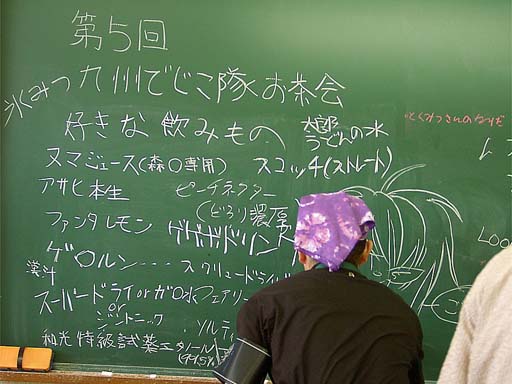 第5回
氷みつ九州でじこ隊お茶会
好きな飲みもの
太郎
うどんの水
ヌマジュース(森〇専用)
スコッチ(ストレート)
アサヒ本生
ピーチネクター
(どろり濃厚
ファンタレモン
ゲルルン・・・
スクリュードライバ
スーパードライorガロ水
フェアリー
or
ジントニック
ソルティ
和光特級試薬エタノール
(99.5%
LOO